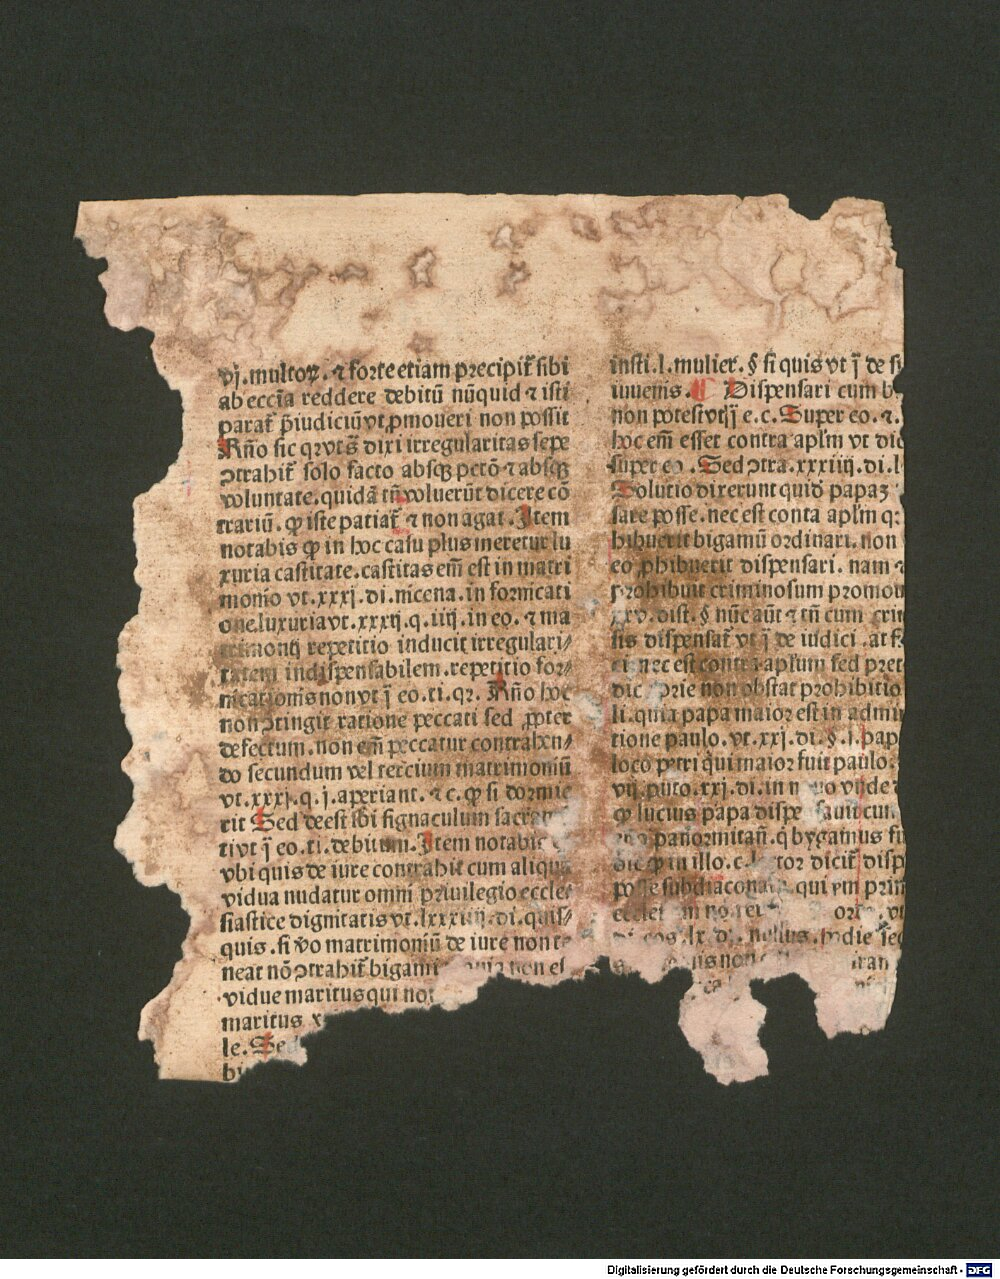 vj. multoꝝ. ⁊ forte etiam precipit̃ sibi
ab eccĩa reddere debitũ nũquid ⁊ isti
parat̃ p̃iudiciũ vt ꝓmoueri non possit
Rñо sic qr vt s̃ dixi irregularitas sepe
ↄtrahit̃ solo facto absqꝫ pctõ ⁊ absqꝫ
voluntate. quidã tñ voluerũt dicere cõ
trariũ. ꝙ iste patiat̃ ⁊ non agat. Item
notabis ꝙ in hoc casu plus meretur lu
xuria castitate. castitas em̃ est in matri
monio vt. xxxj. di. nicena. in fornicati
one. luxuria vt. xxxij. q. iiij. in eo. ⁊ ma
trimonij repetitio inducit irregulari⸗
tatem indispensabilem. repetitio for⸗
nicationis non vt j̃ eo. ti. qr. Rñо hoc
non ↄtingit ratione peccati sed ꝓpter
defectum. non em̃ peccatur contrahen⸗
do secundum vel tercium matrimoniũ
vt. xxxj. q. j. aperiant. ⁊ c. ꝙ si dormie
rit Sed deest ibi signaculum sacra
ti vt j̃ eo. ti. debitum. Item notabis
vbi quis de iure contrahit cum aliqua
vidua nudatur omni priuilegio eccle⸗
siastice dignitatis vt. lxxxiiij. di. quis⸗
quis. si ṽo matrimoniũ de iure non te
neat nõ ↄtrahit̃ bigami quia non est
vidue maritus qui no
maritus
le. Sed
bi
insti. l. mulier. § si quis vt j̃ de s
iuuenis. ¶ Dispensari cum b
non potest vt j̃ e. c. Super eo. ⁊.
hoc em̃ esset contra apl'm vt dic
super eo. Sed ↄtra. xxxiiij. di. l
Solutio dixerunt quid papaꝫ
sare posse. nec est conta apl'm q
hibuerit bigamũ ordinari. non
eo ꝓhibuerit dispensari. nam ⁊
prohibuit criminosum promou
xxv. dist. § nũc aũt ⁊ tñ cum crim
sis dispensat̃ vt j̃ de iudici. at
nec est contra apl'um sed pret
dic prie non obstat prohibitio
li. quia papa maior est in admi
tione paulo. vt. xxj. di. § . j. pap
loco petri qui maior fuit paulo.
vij. puto. xxj. di. in n uo vnde
ꝙ lucius papa dispe sauit cum
panormitañ. q bygamus fu
dic ꝙ in illo. c. l tor dicit̃ disp
posse subdiacona qui vm prim
eccle
nullus. hodie sed
non